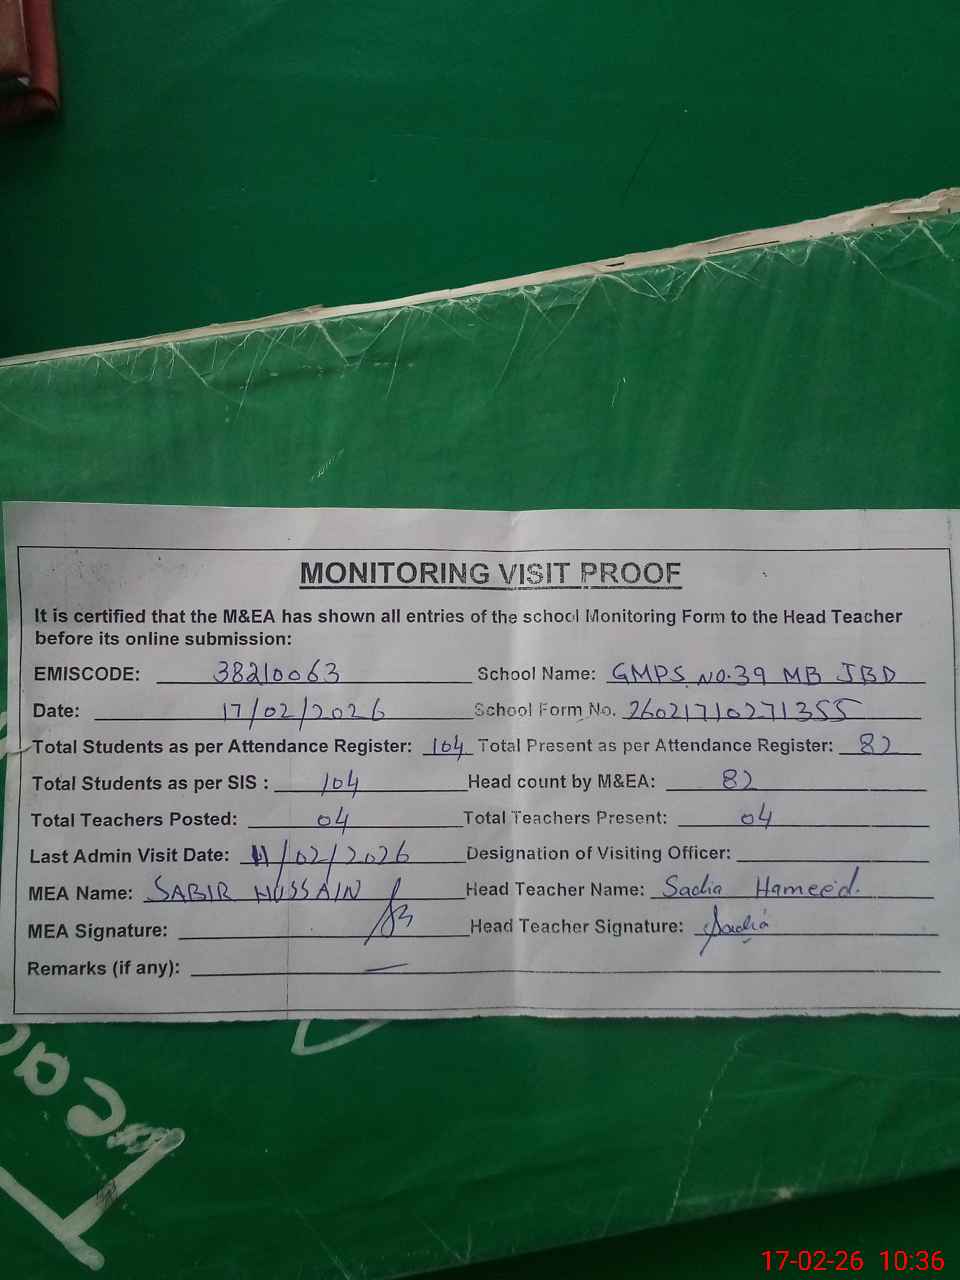 MONITORING VISIT PROOF
It is certified that the M&EA has shown all entries of the school Monitoring Form to the Head Teacher
before its online submission:
EMISCODE: 38210063 School Name: GMPS NO.39 MB JBD
Date: 17/02/2026 School Form No. 26021710271355
Total Students as per Attendance Register: 104 Total Present as per Attendance Register: 82
Total Students as per SIS : 104 Head count by M&EA: 82
Total Teachers Posted: 04 Total Teachers Present: 04
Last Admin Visit Date: 11/02/2026 Designation of Visiting Officer:
MEA Name: SABIR HUSSAIN Head Teacher Name: Sadia Hameed.
MEA Signature: Head Teacher Signature: Sadia
Remarks (if any): —
17-02-26 10:36